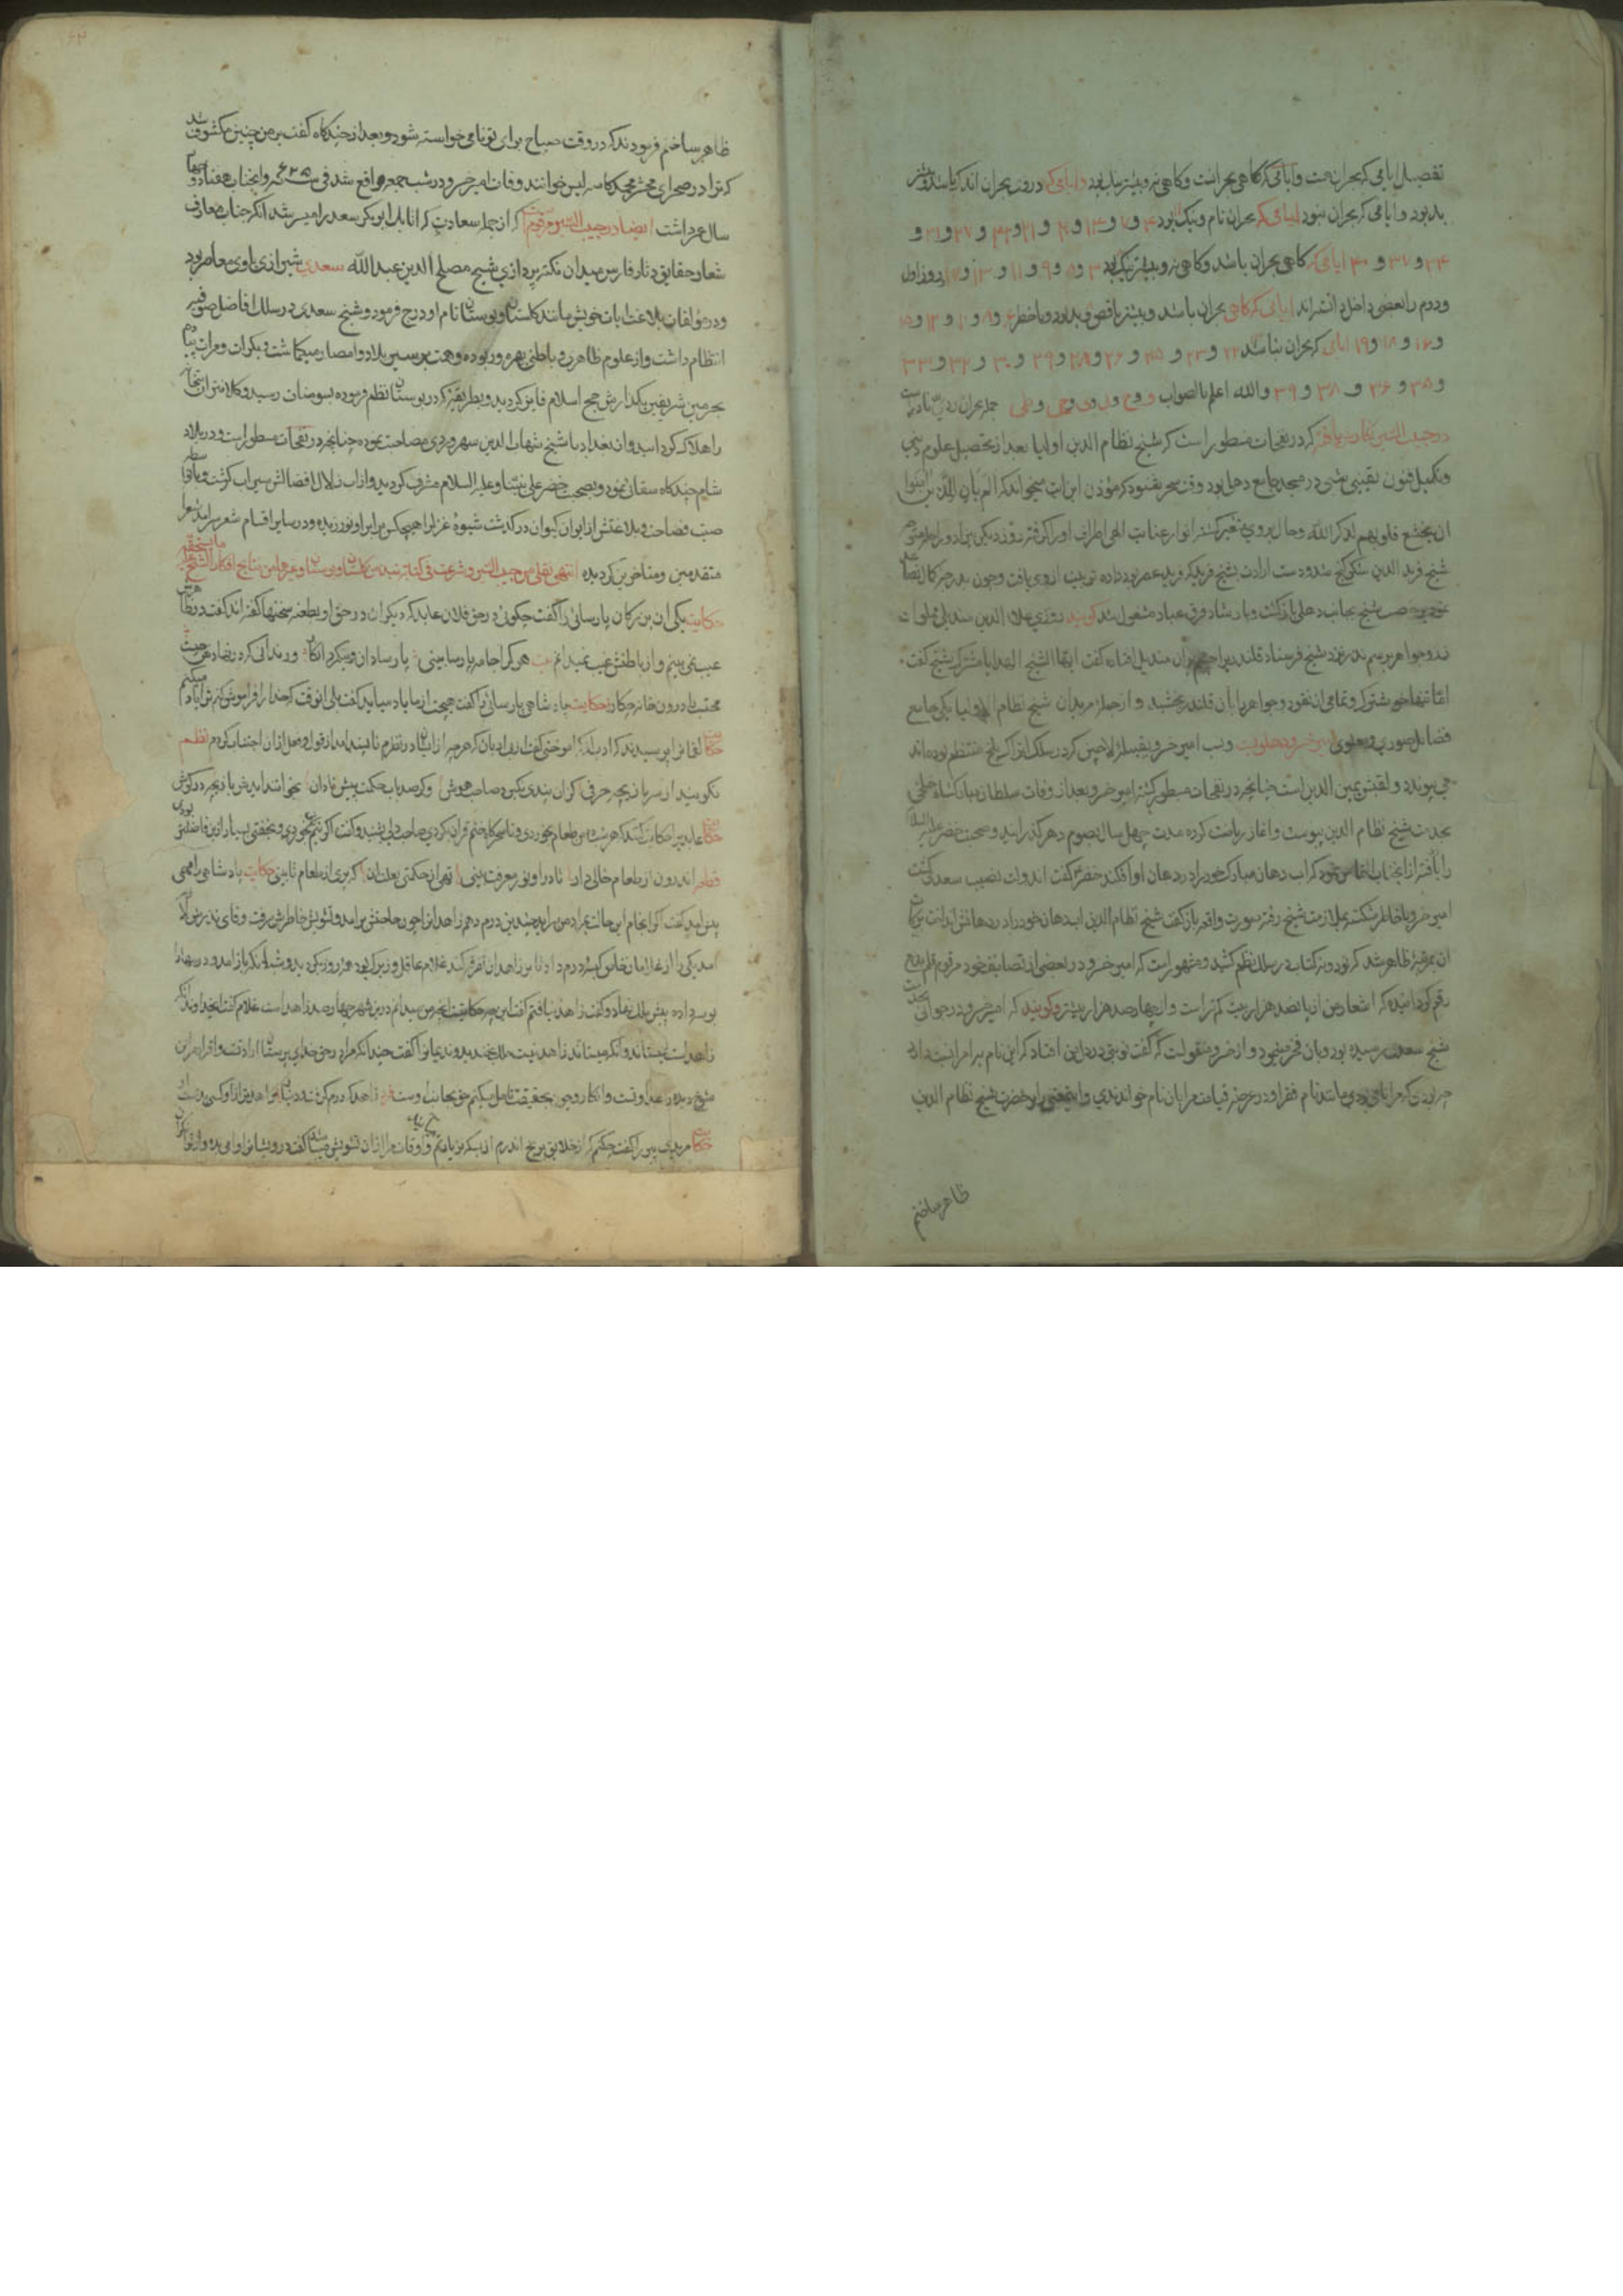 تفصیل ایامی که بحران است و ایامی که گاهی بحرانست و گاهی نه و بیشتر نیک بود و ایامی که در وی بحران اندک باشد و بیشتر
بد بود و ایامی که بحران نبود ایامی که بحران تام و نیک بود ۴ و ۷ و ۱۴ و ۲۰ و ۲۱ و ۲۴ و ۲۷ و ۳۱ و
۳۴ و ۳۷ و ۴۰ ایامی که گاهی بحران باشد و گاهی نه و بیشتر نیک بود ۳ و ۵ و ۹ و ۱۱ و ۱۳ و ۱۷ و روز اول
و دوم را بعضی داخل دانسته‌اند ایامی که گاهی بحران باشد و بیشتر ناقص و بد بود و با خطر ۶ و ۸ و ۱۰ و ۱۲ و ۱۵
و ۱۶ و ۱۸ و ۱۹ ایامی که بحران نباشد ۲۲ و ۲۳ و ۲۵ و ۲۶ و ۲۸ و ۲۹ و ۳۰ و ۳۲ و ۳۳
و ۳۵ و ۳۶ و ۳۸ و ۳۹ والله اعلم بالصواب
در حبیب السیر نگارش یافته که در نفحات مسطور است که شیخ نظام الدین اولیا بعد از تحصیل علوم دینی
و تکمیل فنون یقینی شبی در مسجد جامع دهلی بود وقت سحر بغنود که مؤذن این آیت میخواند که الم یأن للذین آمنوا
ان تخشع قلوبهم لذکر الله و حال بر وی متغیر گشته انوار عنایت الهی اطراف او را گرفته روز دیگر بی زاد و راحله متوجه
شیخ فرید الدین شکر گنج شد و دست ارادت بشیخ فرید که فرید عصر بود داده تربیت از وی یافت و چون بدرجه کمال
شیخ بجانب دهلی بازگشت و بارشاد فرق عباد مشغول شد گویند روزی علاء الدین مندیلی مملو از
نقد و جواهر برسم نذر نزد شیخ فرستاد قلندری بر آن مندیل افتاده گفت ایها الشیخ الهدایا مشترک شیخ گفت
اما تنها خوشترک و تمامی آن نقود و جواهر را بآن قلندر بخشید و از جمله مریدان شیخ نظام اولیا یکی جامع
فضایل صوری و معنوی امیر خسرو دهلویست و نسب امیر خسرو بقبیله لاچین که در سلک اتراک بلخ منتظم بوده‌اند
می پیوندد و لقبش یمین الدین است چنانچه در نفحات مسطور گشته امیر خسرو بعد از وفات سلطان مبارکشاه خلجی
بخدمت شیخ نظام الدین پیوست و آغاز ریاضت کرده مدت چهل سال بصوم دهر گذرانید و صحبت خضر علیه السلام
را یافته از آنجناب التماس نمود که آب دهان مبارک خود را در دهان او افکند خضر گفت این دولت نصیب سعدی گشت
امیر خسرو با خاطر شکسته بملازمت شیخ رفته صورت واقعه باز گفت شیخ نظام الدین آب دهان خود را در دهانش انداخت برکات
آن بمرتبه ظاهر شد که نود و نه کتاب در سلک نظم کشید و مشهور است که امیر خسرو در بعضی از تصانیف خود مرقوم قلم بدایع
رقم گردانیده که اشعار من از پانصد هزار بیت کمتر است و از چهارصد هزار بیشتر و گویند که امیر خسرو در جوانی بخدمت
شیخ سعدی رسیده بود و بدان فخر مینمود و از خسرو منقولست که گفت نوبتی در دل من افتاد که این نام بر امرا نسبت دارد
چه بودی که مرا نامی بودی مانند نام فقرا و در عرصه قیامت مرا بآن نام خواندندی و این معنی را بر حضرت شیخ نظام الدین
ظاهر ساختم
ظاهر ساختم فرمودند که در وقت صباح برای تو نامی خواسته شود و بعد از چندگاه گفت بر من چنین مکشوف شد
که ترا در صحرای محشر محمد کاسه لیس خوانند وفات امیر خسرو در شب جمعه واقع شد فی سنه ۷۲۵ و آنجناب هفتاد و چهار
سال عمر داشت ایضا در حبیب السیر مرقوم که از جمله سعادت که اتابک ابوبکر سعد را میسر شد آنکه جناب معارف
شعار حقایق دثار فارس میدان نکته پردازی شیخ مصلح الدین عبد الله سعدی شیرازی با وی معاصر بود
و در مؤلفات بلاغت آیات خویش مانند گلستان و بوستان نام او درج فرمود و شیخ سعدی در سلک افاضل صوفیه
انتظام داشت و از علوم ظاهری و باطنی بهره‌ور بوده و همت بر سیر بلاد و امصار میگماشت و بکرات و مرات پیاده
بحرمین شریفین بگذارش حج اسلام فایز گردید و بطریقی که در بوستان نظم فرموده بسومنات رسید و کلانتر بتان
را هلاک گردانید و در بغداد با شیخ شهاب الدین سهروردی مصاحبت نموده چنانچه در نفحات مسطور است و در بلاد
شام چندگاه سقائی نمود و بصحبت خضر علی نبینا و علیه السلام مشرف گردید و از آب زلال افضالش سیراب گشت و باقا
صیت فصاحت و بلاغتش از ایوان کیوان درگذشت شیوه غزل را هیچکس برابر او نورزیده و در سایر اقسام شعر سرآمد شعرا
متقدمین و متأخرین گردیده انتهی نقلی من حبیب السیر و شرعت فی کتابة نبذ من گلستان و بوستان و غیرهما من نتایج افکار الشیخ
حکایت یکی از بزرگان پارسائی را گفت چگوئی در حق فلان عابد که دیگران در حق او بطعنه سخنها گفته‌اند گفت در ظاهرش
عیب نمی‌بینم و از باطنش غیب نمیدانم بیت هر که را جامه پارسا بینی پارسا دان و نیک مرد انگار ور ندانی که در نهادش چیست
محتسب را درون خانه چکار حکایت پادشاهی پارسائی را گفت هیچت از ما یاد می‌آید گفت بلی آنوقت که خدا را فراموش میکنم
حکایت لقمانرا پرسیدند که ادب از که آموختی گفت از بی ادبان که هر چه از ایشان در نظرم ناپسند آمد از فعل آن اجتناب کردم نظم
نگویند از سر بازیچه حرفی کزان پندی نگیرد صاحب هوش وگر صد باب حکمت پیش نادان بخوانند آیدش بازیچه در گوش
حکایت عابدی را حکایت کنند که هر شب ده من طعام بخوردی و تا سحرگاه ختم قرآن بکردی صاحبدلی بشنید و گفت اگر نیم نانی بخوردی و بخفتی بسیار ازین فاضلتر بودی
قطعه اندرون از طعام خالی دار تا درو نور معرفت بینی تهی از حکمتی بعلت آن که پری از طعام تا بینی حکایت پادشاهی را مهمی
پیش آمد گفت اگر انجام این حالت بمراد من برآید چندین درم دهم زاهدان را چون حاجتش برآمد و تشویش خاطرش برفت وفای نذرش لازم
آمد یکی را از غلامان خاص کیسه درم داد تا بر زاهدان تفرقه کند غلام عاقل و زیرک بود همه روز بگردید و شبانگه باز آمد و درمها را
بوسه داده پیش ملک نهاد و گفت زاهد نیافتم گفت این چه حکایتست آنچه من میدانم درین شهر چهارصد زاهد است غلام گفت ای خداوند آنکه
زاهد است نمیستاند و آنکه میستاند زاهد نیست ملک بخندید و ندیمان را گفت چندانکه مرا در حق خدای پرستان ارادتست و اقرار مر این
شوخ دیده را عداوتست و انکار و چون بحقیقت تأمل میکنم حق بجانب اوست زاهد که درم گرفت و دینار زاهدتر از او کسی بدست آر
حکایت مریدی پیر را گفت چکنم که از خلایق برنج اندرم از بسکه بزیارتم و اوقات مرا از آن تشویش میباشد گفت درویشانرا وامی بده و از توانگران